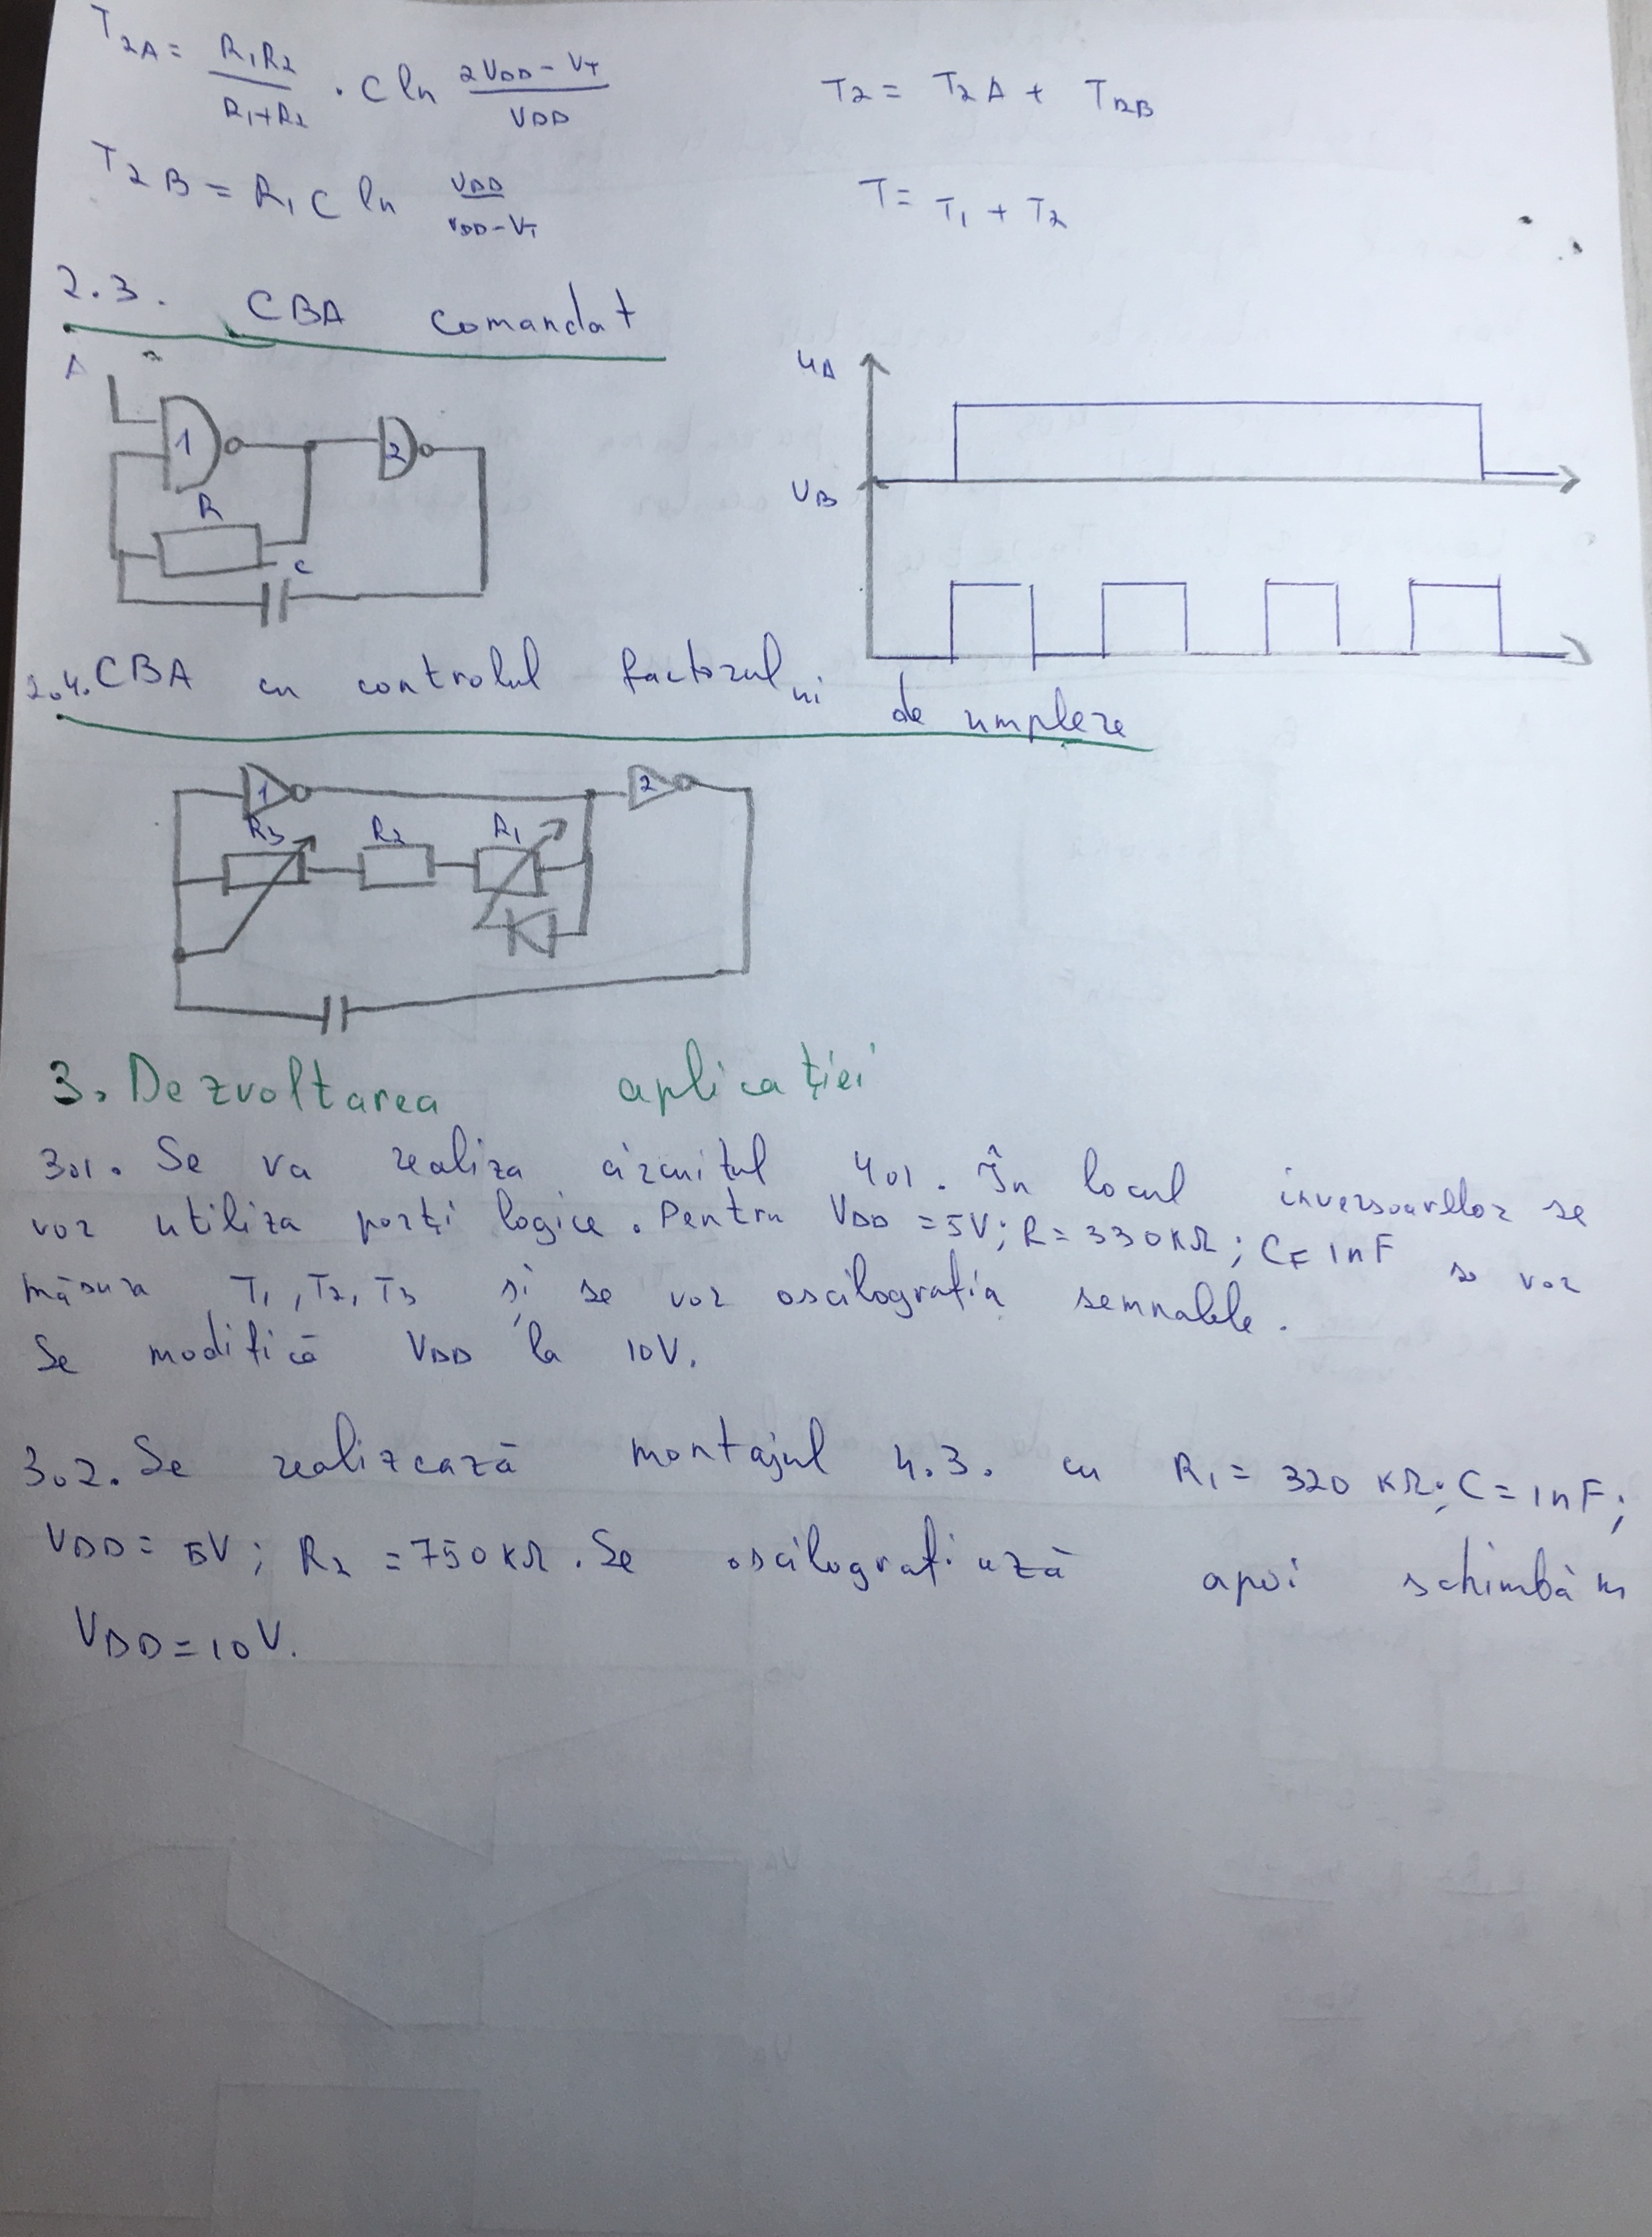 T2A = R1R2/R1+R2 · C ln 2VDD - VT/VDD
T2 = T2A + T2B
T2B = R1C ln VDD/VDD-VT
T = T1 + T2
2.3. CBA comandat
A
1
2
R
C
UA
UB
2.4. CBA cu controlul factorului de umplere
1
2
R3
R2
R1
3. Dezvoltarea aplicației
3.1. Se va realiza circuitul 4.1. În locul inversoarelor se
vor utiliza porți logice. Pentru VDD = 5V; R = 330KΩ; C = 1nF se vor
măsura T1, T2, T3 și se vor oscilografia semnalele.
Se modifică VDD la 10V.
3.2. Se realizează montajul 4.3. cu R1 = 320 KΩ; C = 1nF;
VDD = 5V; R2 = 750KΩ. Se oscilografiază apoi schimbăm
VDD = 10V.